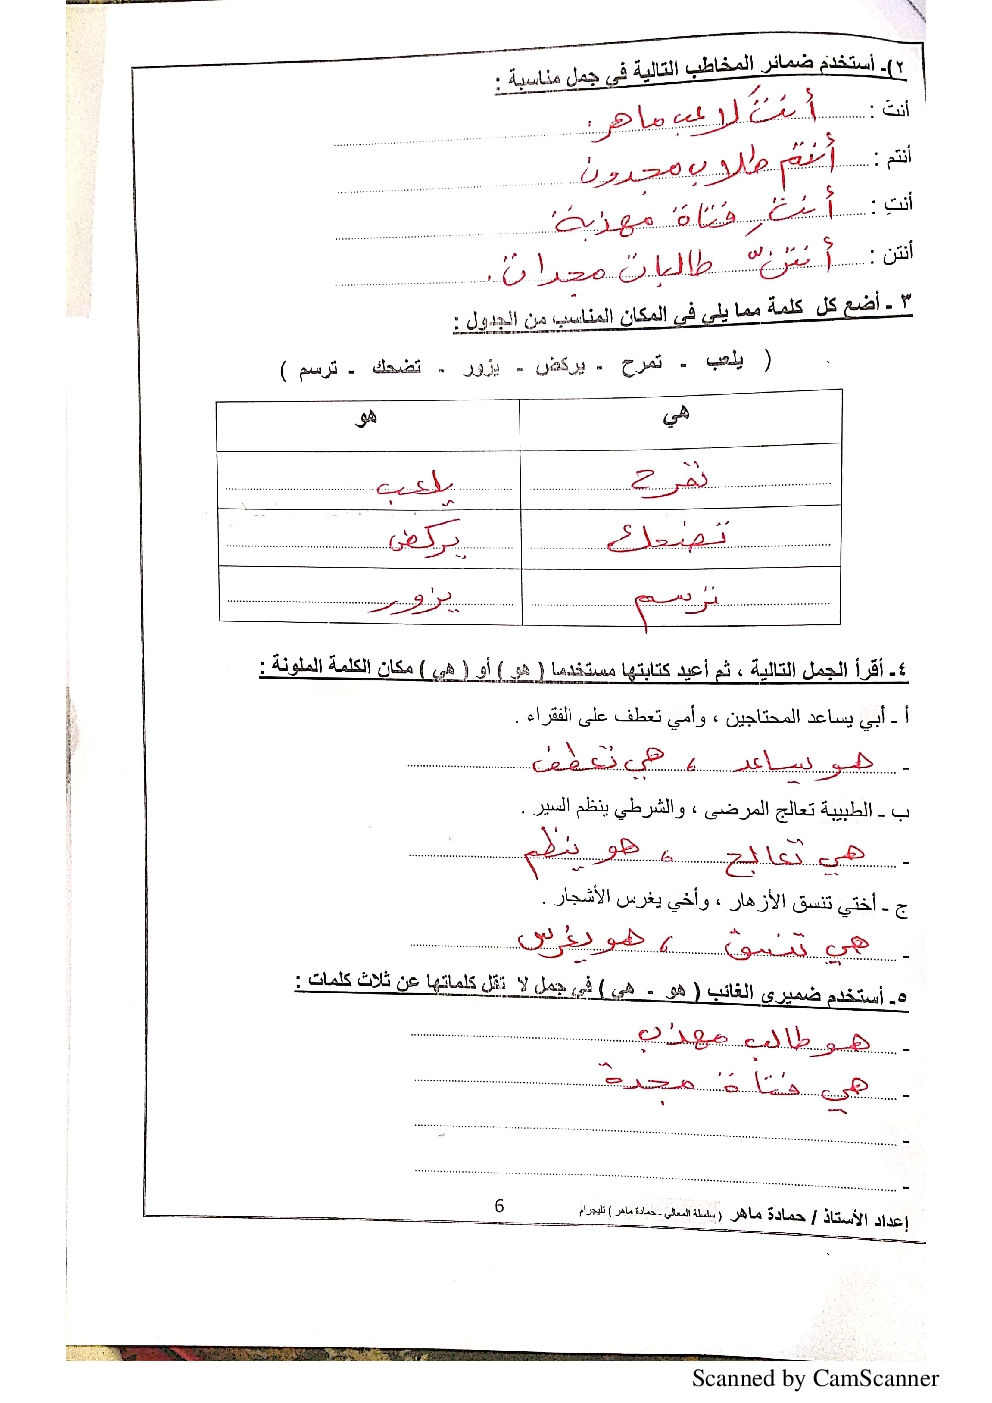 ٢)- أستخدم ضمائر المخاطب التالية في جمل مناسبة :
أنتَ : أنتَ لاعب ماهر .
أنتم : أنتم طلاب مجدون
أنتِ : أنتِ فتاة مهذبة
أنتن : أنتنّ طالبات مجدات .
٣ - أضع كل كلمة مما يلي في المكان المناسب من الجدول :
( يلعب - تمرح - يركض - يزور - تضحك - ترسم )
هي هو
تمرح يلعب
تضحك يركض
ترسم يزور
٤- أقرأ الجمل التالية ، ثم أعيد كتابتها مستخدما ( هو ) أو ( هي ) مكان الكلمة الملونة :
أ - أبي يساعد المحتاجين ، وأمي تعطف على الفقراء .
- هو يساعد ، هي تعطف
ب - الطبيبة تعالج المرضى ، والشرطي ينظم السير .
- هي تعالج ، هو ينظم
ج - أختي تنسق الأزهار ، وأخي يغرس الأشجار .
- هي تنسق ، هو يغرس
٥- أستخدم ضميري الغائب ( هو - هي ) في جمل لا تقل كلماتها عن ثلاث كلمات :
- هو طالب مهذب
- هي فتاة مجدة
-
-
إعداد الأستاذ / حمادة ماهر ( سلسلة المعالي - حمادة ماهر ) تليجرام 6
Scanned by CamScanner